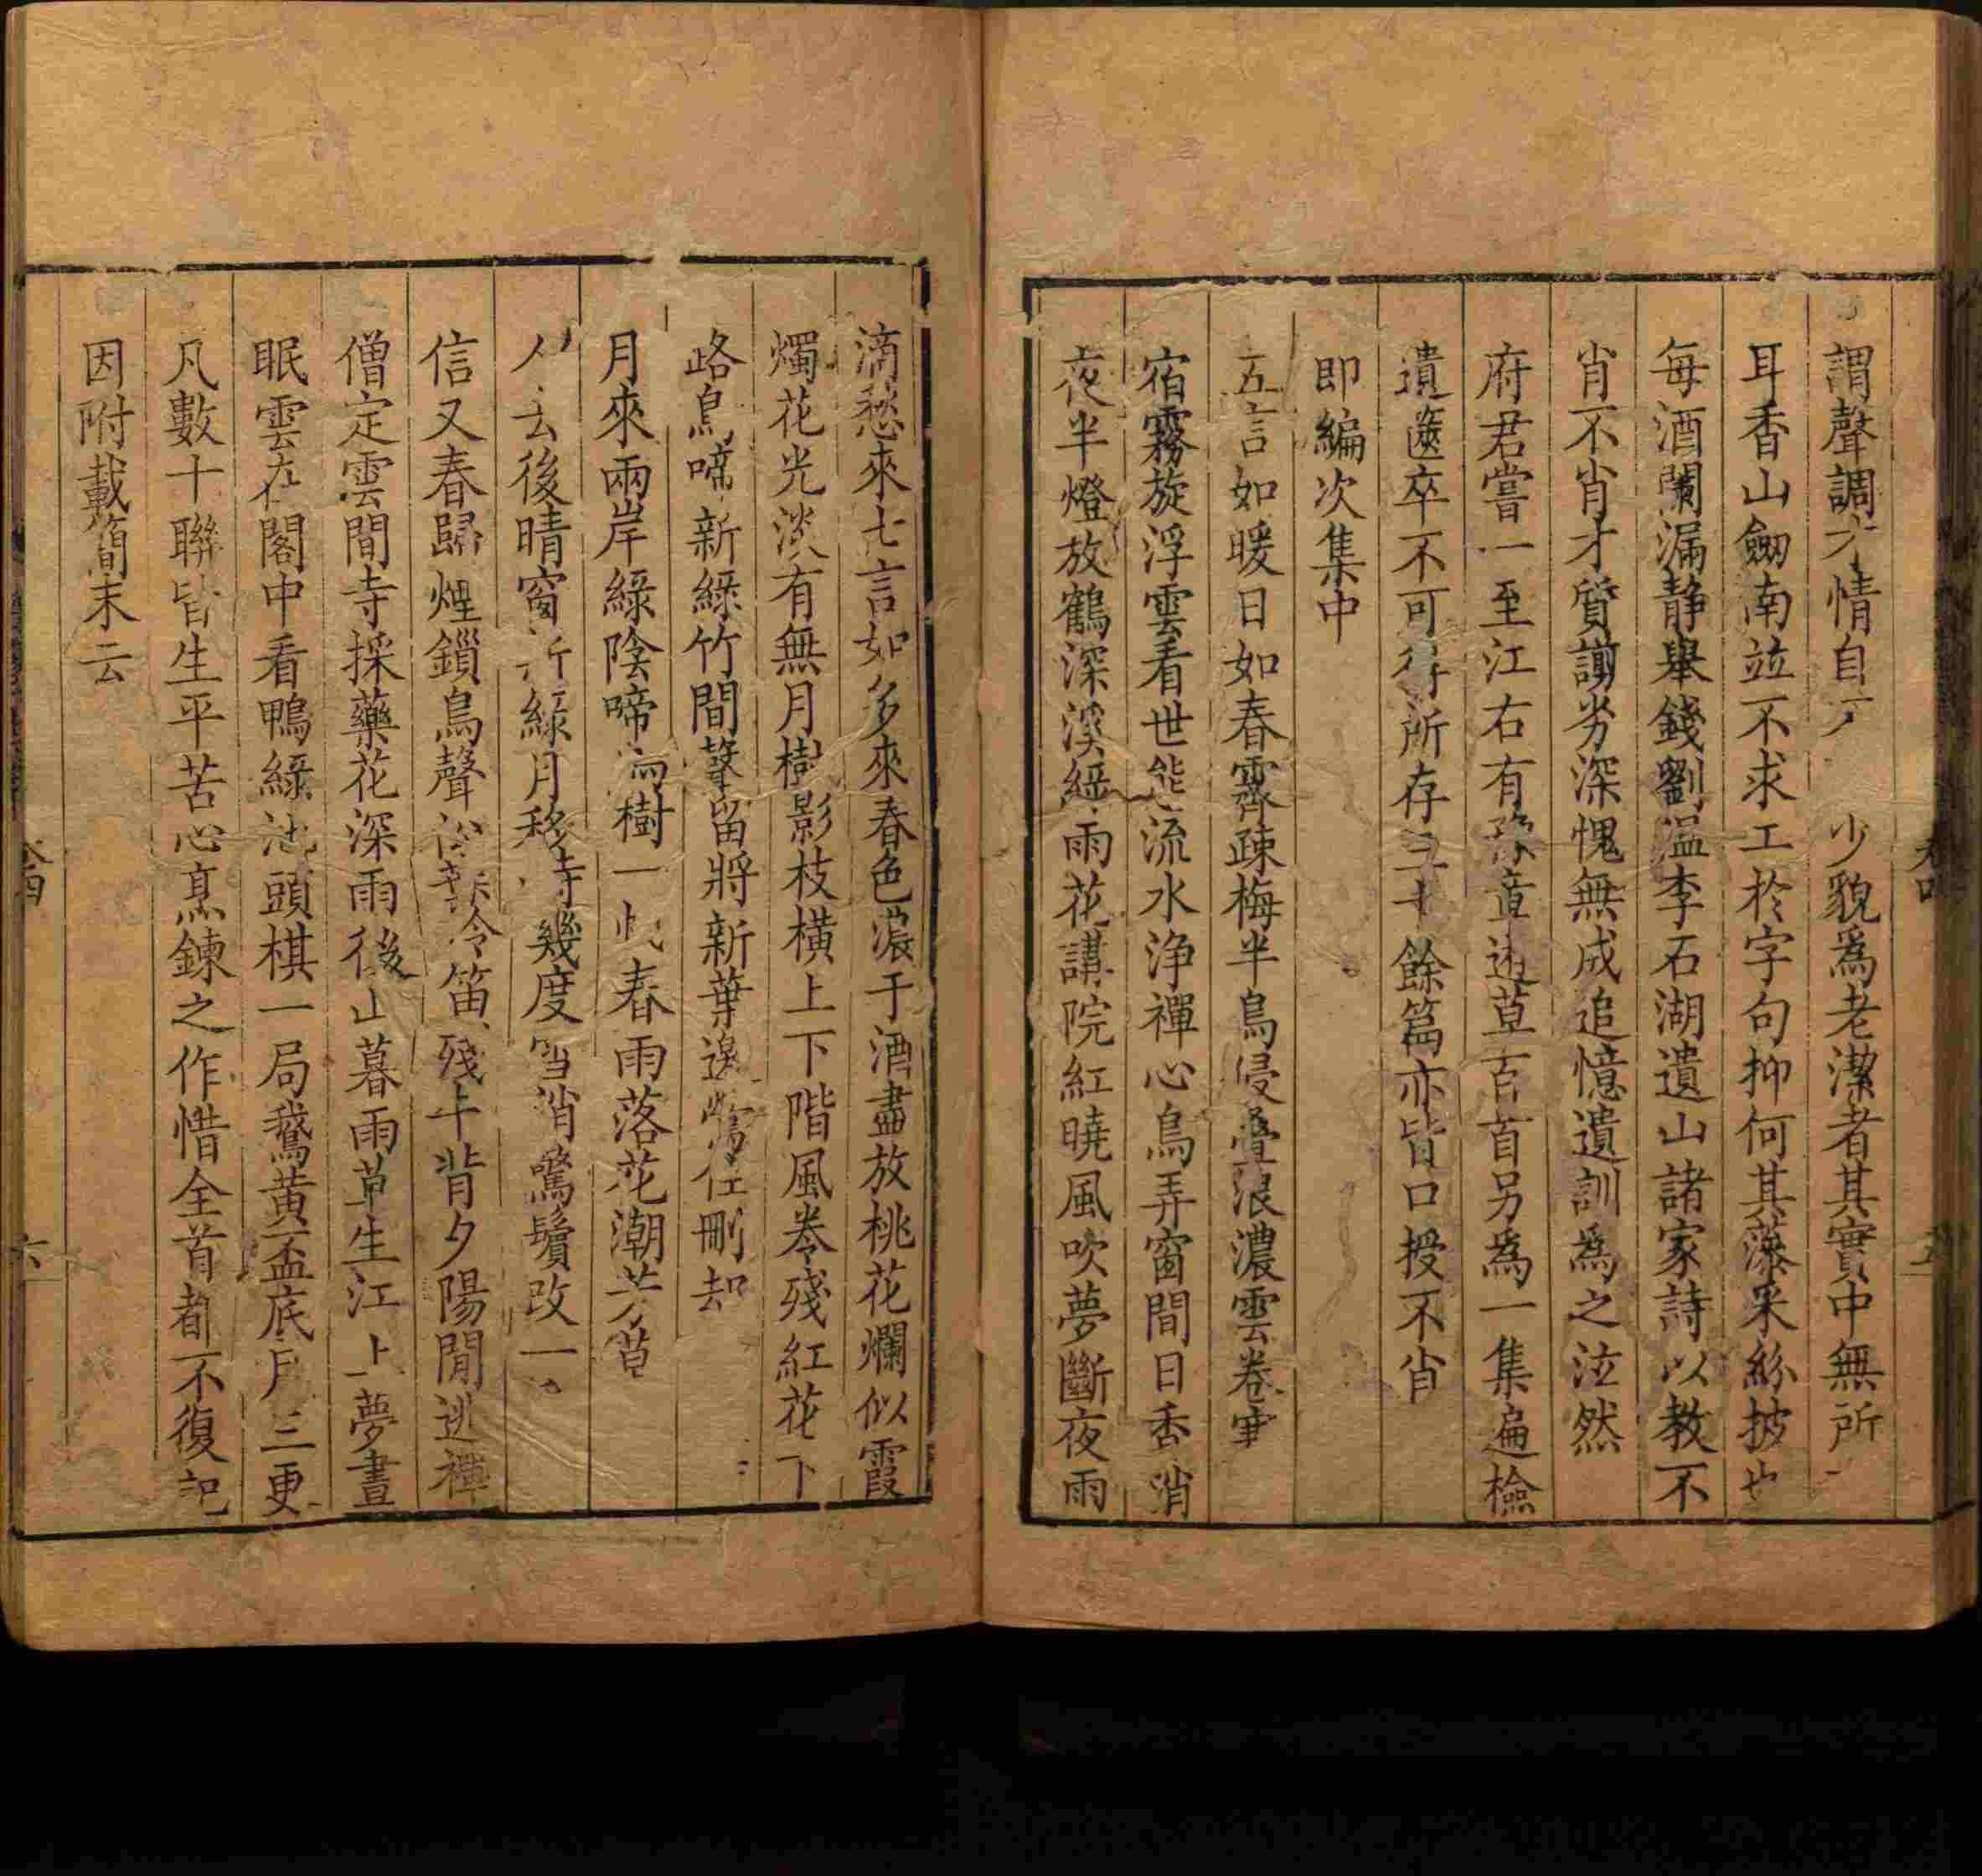 謂聲調才情自 少貌爲老潔者其實中無所
耳香山劒南並不求工於字句抑何其藻采紛披也
每酒闌漏静舉錢劉溫李石湖遺山諸家詩以教不
肖不肖才質謭劣深愧無成追憶遺訓爲之泣然
府君嘗一至江右有豫章遊草百首另爲一集遍檢
遺篋卒不可得所存三十餘篇亦皆口授不肖
即編次集中
五言如暖日如春霽疎梅半烏侵疊浪濃雲卷
宿霧旋浮雲看世態流水浄禪心鳥弄窗間日香消
夜半燈放鶴深溪緑雨花講院紅曉風吹夢斷夜雨
滴愁來七言如多來春色濃于酒盡放桃花爛似霞
燭花光淡有無月樹影枝橫上下階風卷殘紅花下
路鳥啼新緑竹間聲留將新葉邊鶯住刪却
月來兩岸緑陰啼樹一 春雨落花潮
人去後晴窗 緑月移 幾度雪消驚鬢改一
信又春歸煙鎖鳥聲 冷笛殘牛背夕陽閒逃禪
僧定雲間寺採藥花深雨後山暮雨草生江上夢晝
眠雲在閣中看鴨緑池頭棋一局鵞黄盃底月三更
凡數十聯皆生平苦心烹鍊之作惜全首都不復記
因附載簡末云
卷四
五
六